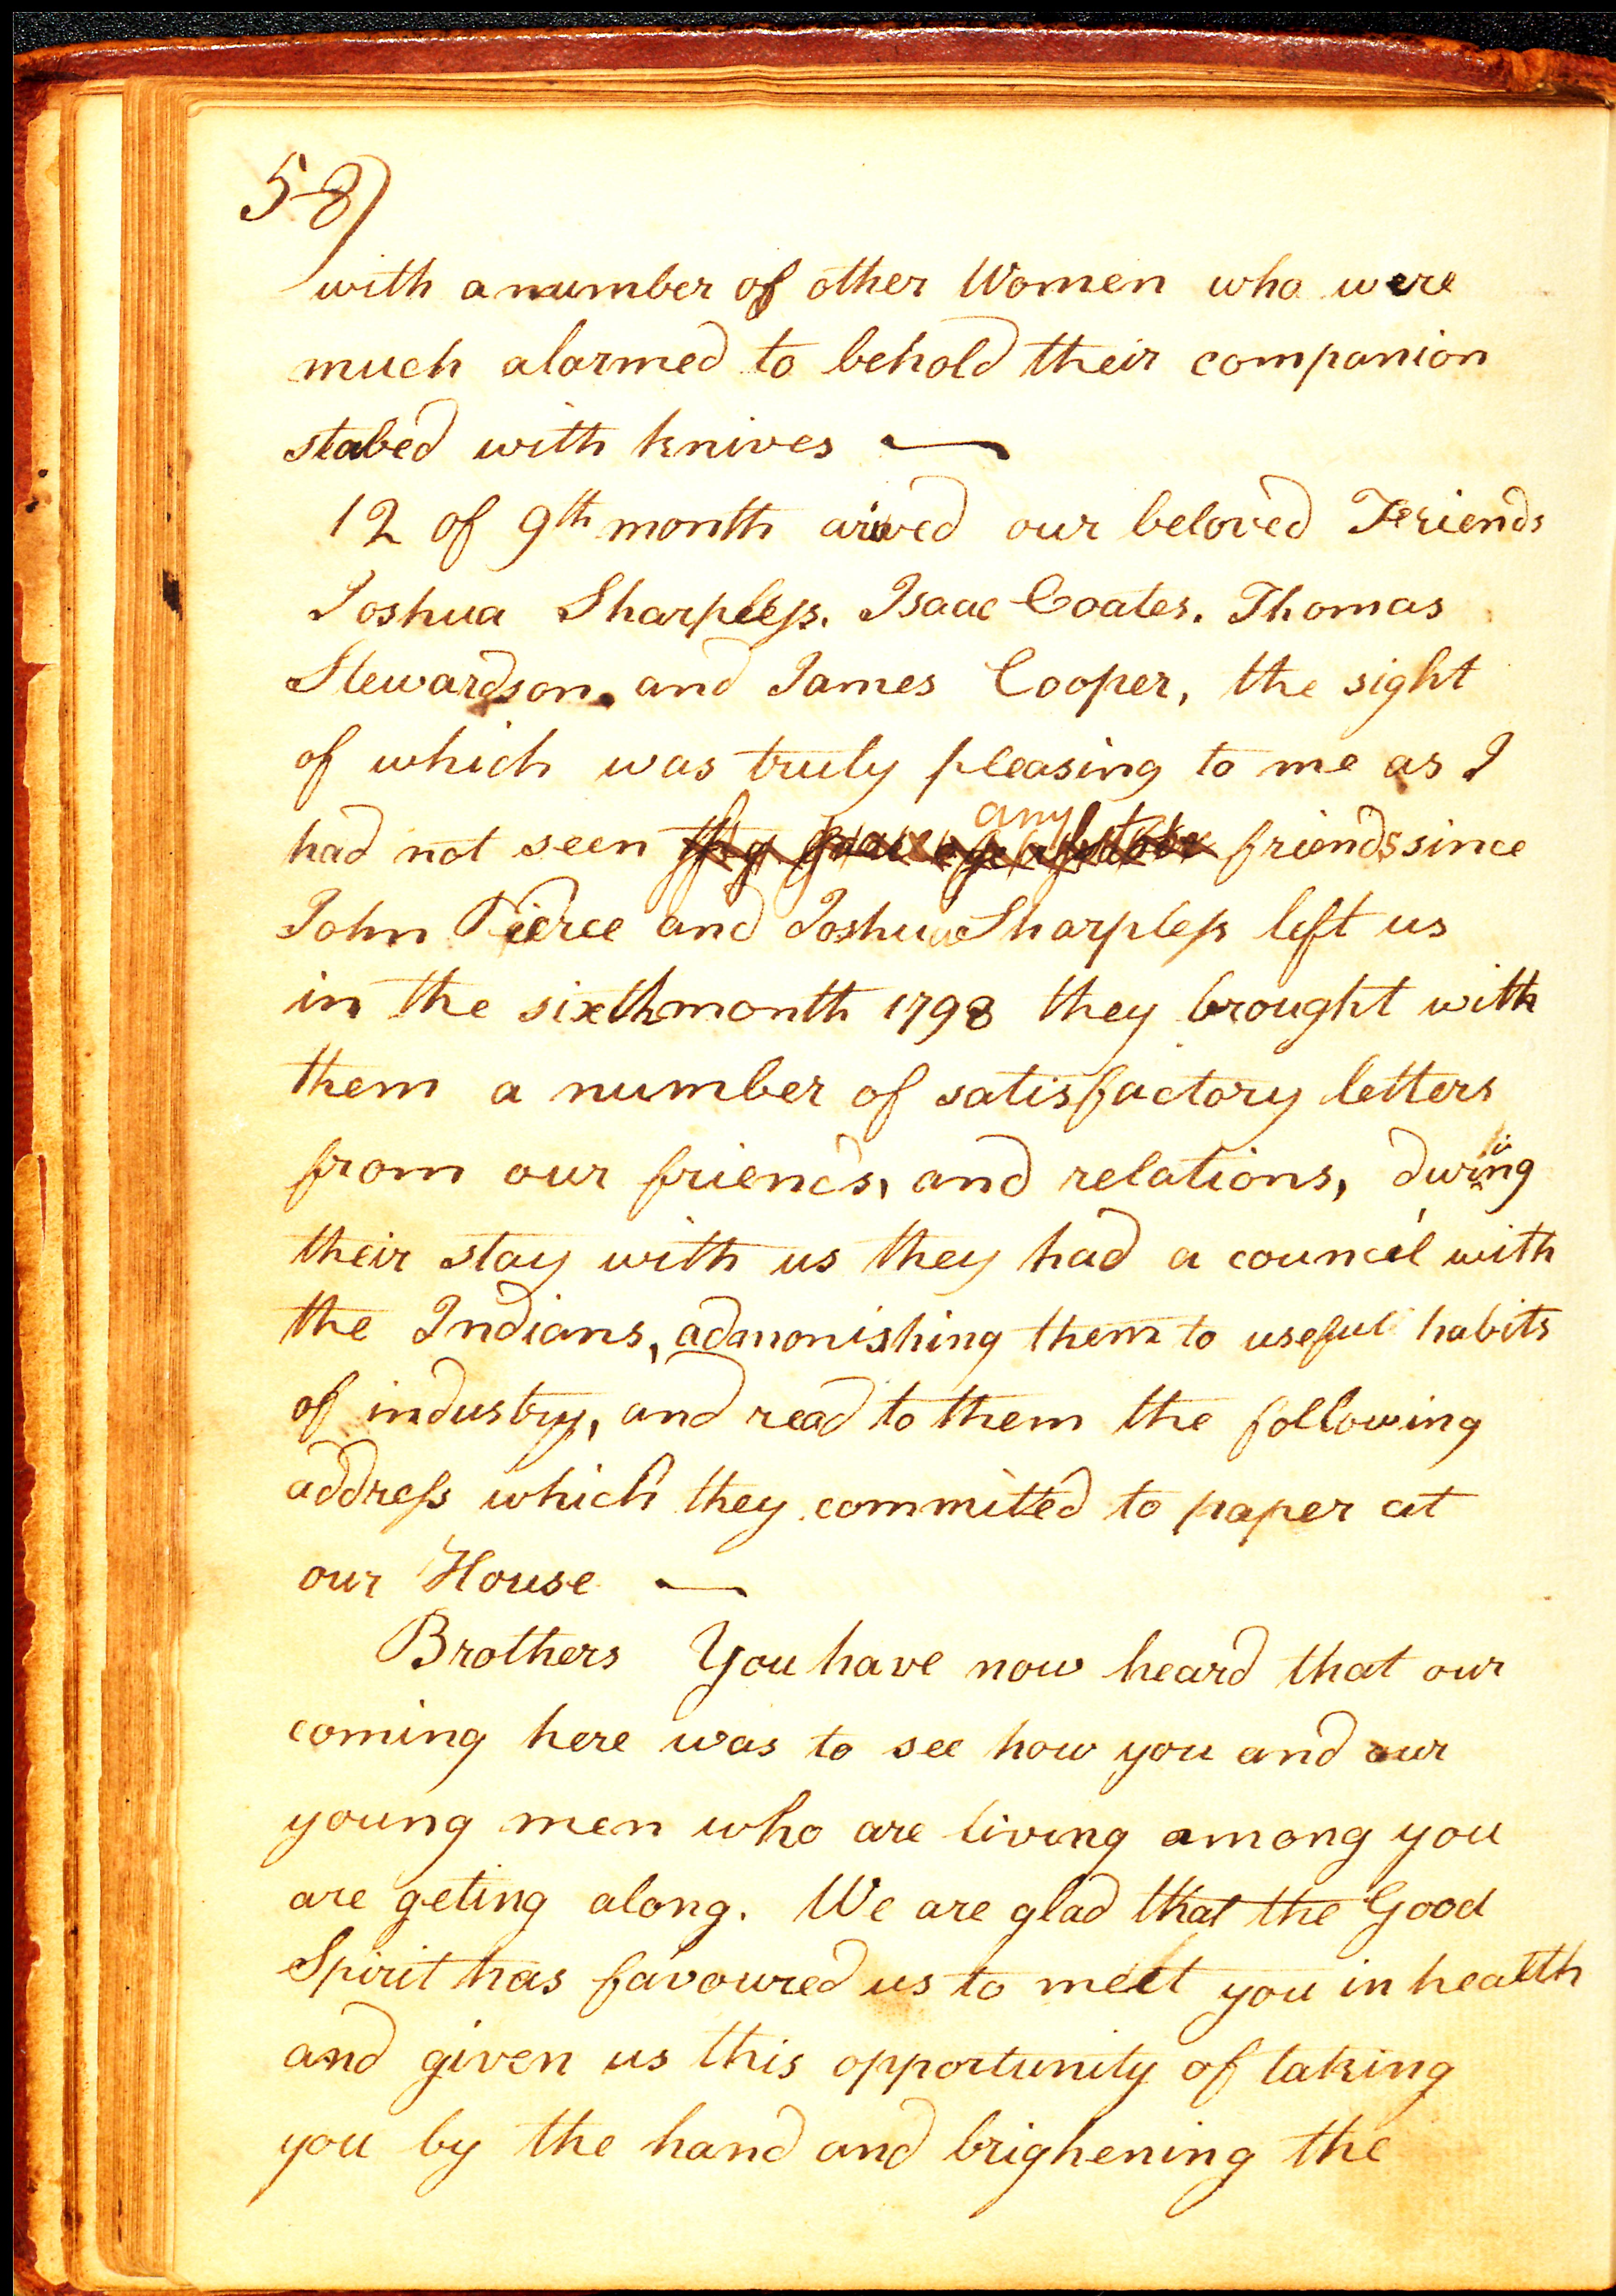 58)
with a number of other Women who were
much alarmed to behold their companion
stabed with knives —
12 of 9th month arived our beloved Friends
Joshua Sharpless. Isaac Coates. Thomas
Stewardson. and James Cooper, the sight
of which was truly pleasing to me as I
had not seen any friends since
John Pierce and Joshua Sharpless left us
in the sixth month 1798 they brought with
them a number of satisfactory letters
from our friends, and relations, during
their stay with us they had a council with
the Indians, admonishing them to useful habits
of industry, and read to them the following
address which they committed to paper at
our House —
Brothers You have now heard that our
coming here was to see how you and our
young men who are living among you
are geting along. We are glad that the Good
Spirit has favoured us to meet you in health
and given us this opportunity of taking
you by the hand and brighening the